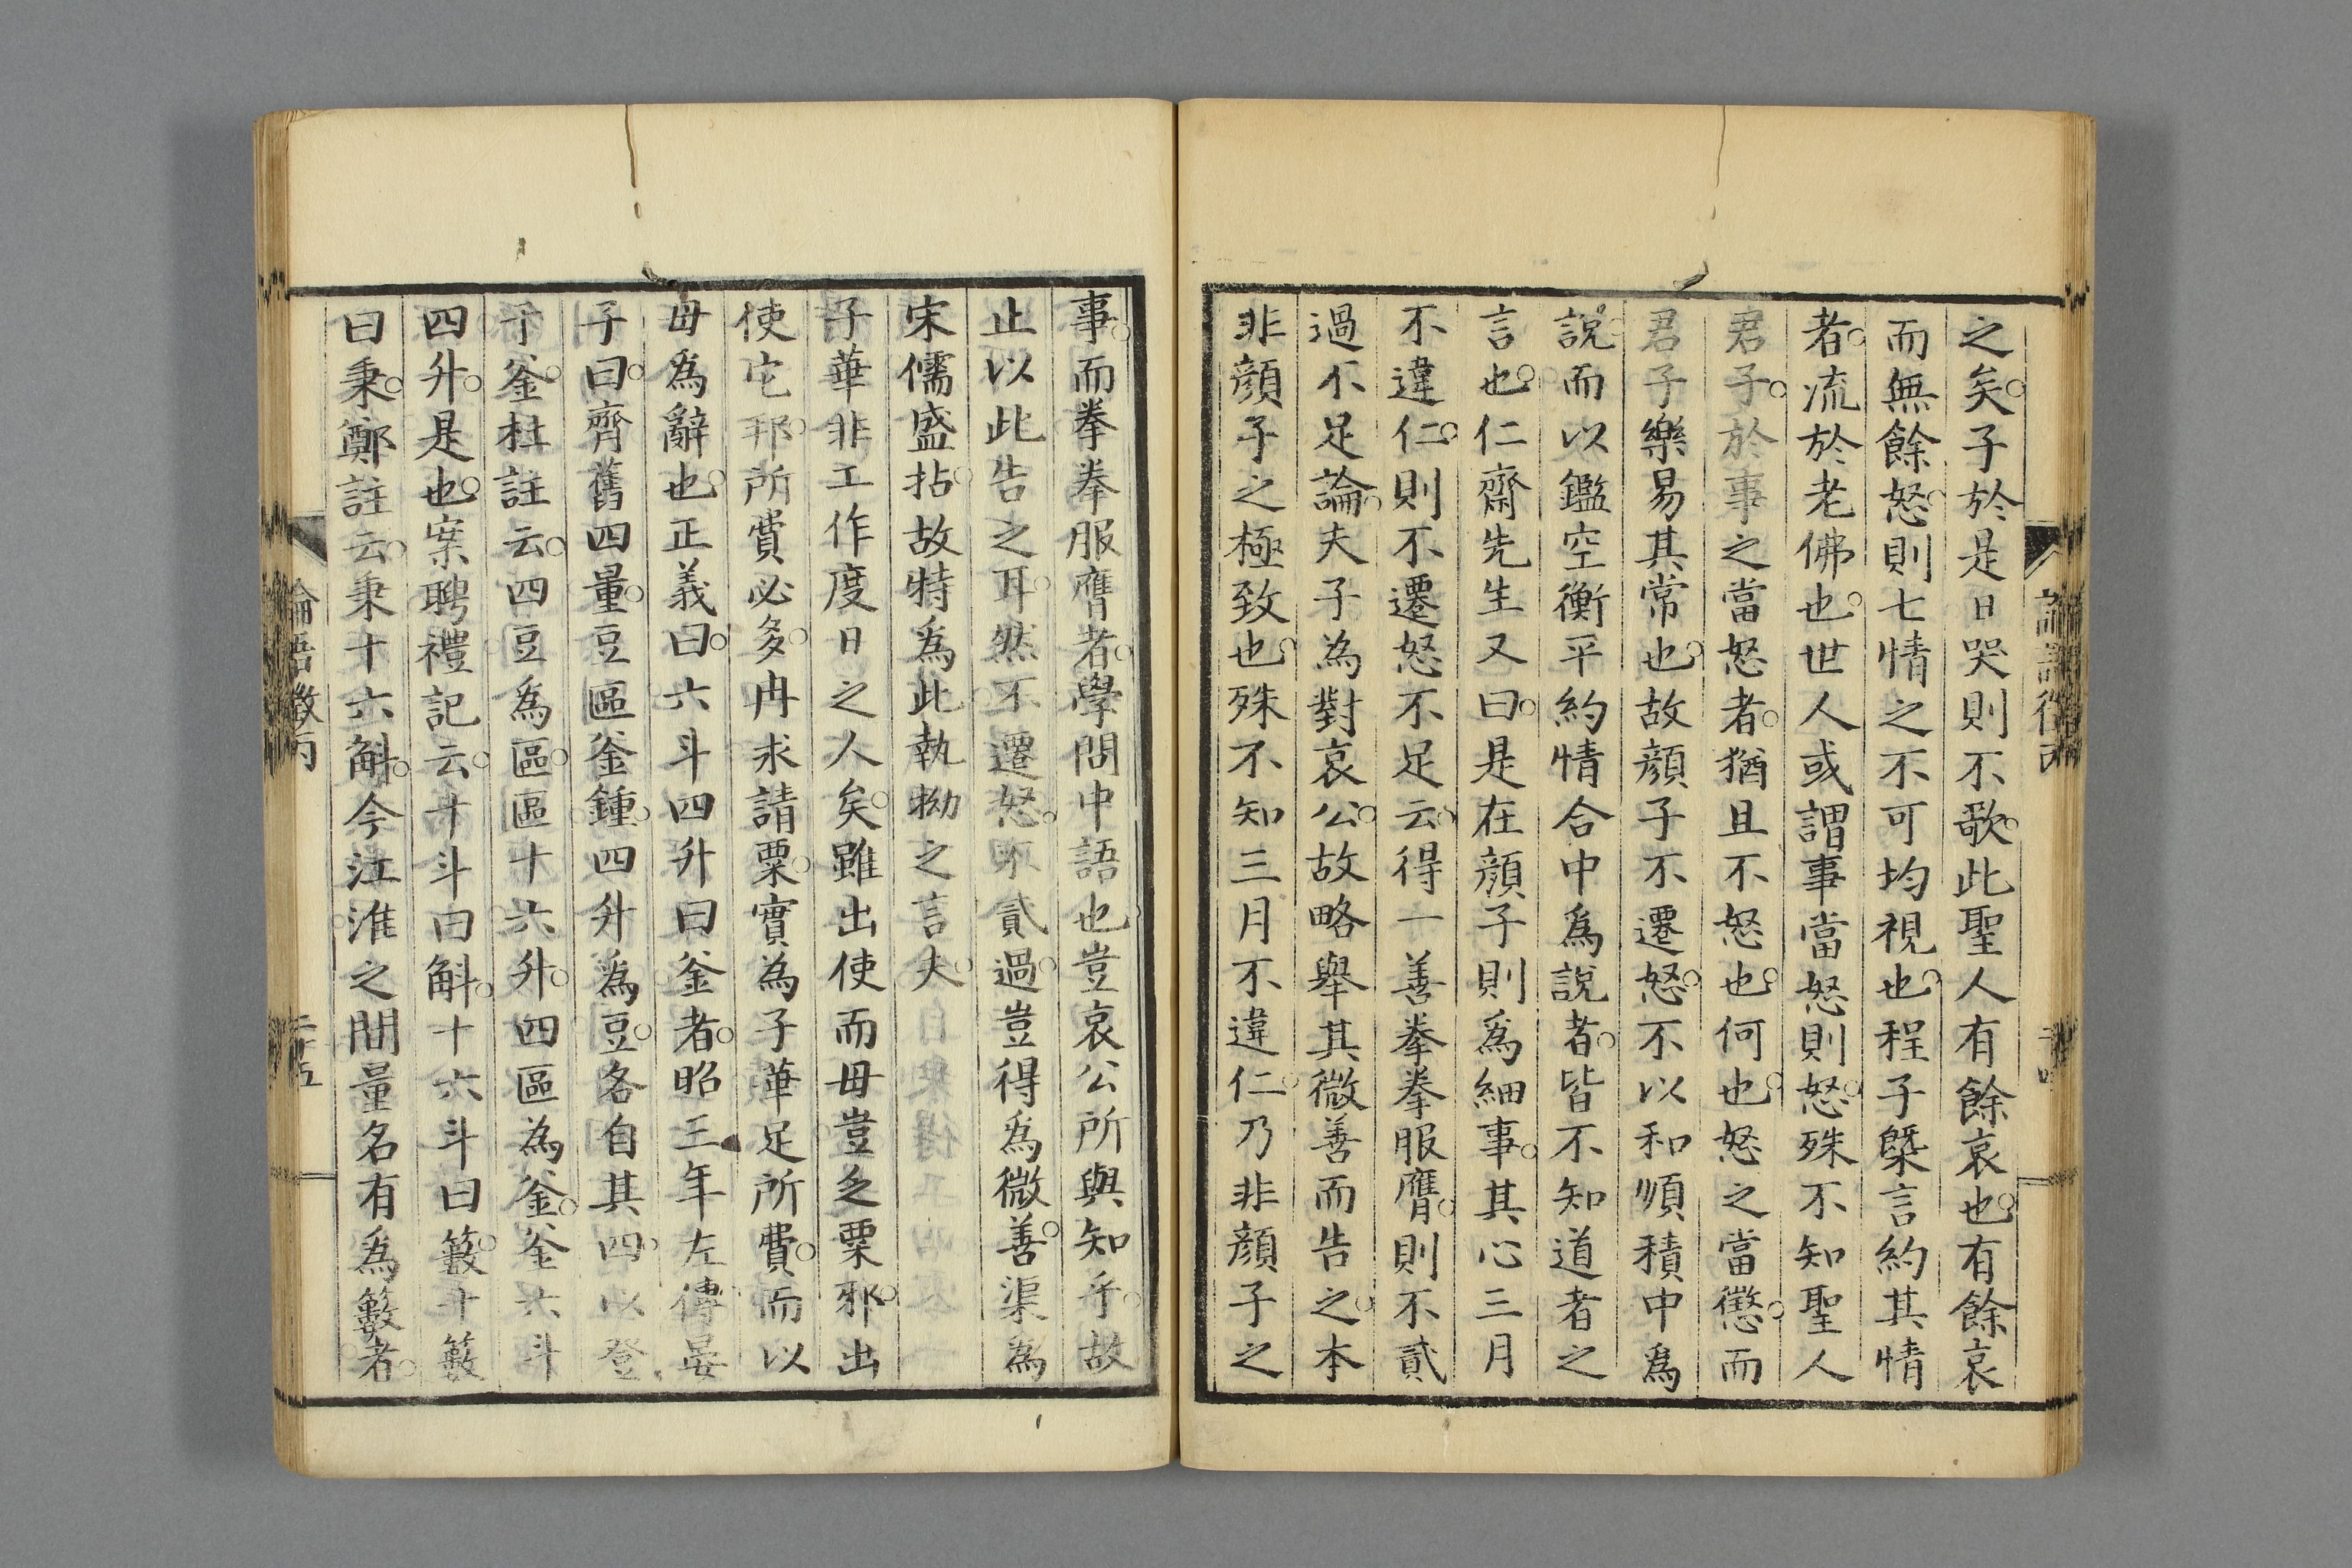 之矣子於是日哭則不歌此聖人有餘哀也有餘哀
而無餘怒則七情之不可均視也程子槩言約其情
者流於老佛也世人或謂事當怒則怒殊不知聖人
君子於事之當怒者猶且不怒也何也怒之當懲而
君子樂易其常也故顏子不遷怒不以和順積中爲
說而以鑑空衡平約情合中爲說者皆不知道者之
言也仁齋先生又曰是在顏子則爲細事其心三月
不違仁則不遷怒不足云得一善拳拳服膺則不貳
過不足論夫子為對哀公故略舉其微善而告之本
非顏子之極致也殊不知三月不違仁乃非顏子之
事而拳拳服膺者學問中語也豈哀公所與知乎故
止以此告之耳然不遷怒不貳過豈得爲微善渠為
宋儒盛拈故特爲此執拗之言夫
子華非工作度日之人矣雖出使而毋豈乏粟邪出
使它邦所賞必多冉求請粟實為子華足所費而以
毋爲辭也正義曰六斗四升曰釜者昭三年左傳晏
子曰齊舊四量豆區釜鍾四升爲豆各自其四以登
于釜杜註云四豆爲區區十六升四區為釜釜六斗
四升是也案聘禮記云十斗曰斛十六斗曰籔十籔
曰秉鄭註云秉十六斛今江淮之間量名有爲籔者
論語徵丙
二十五